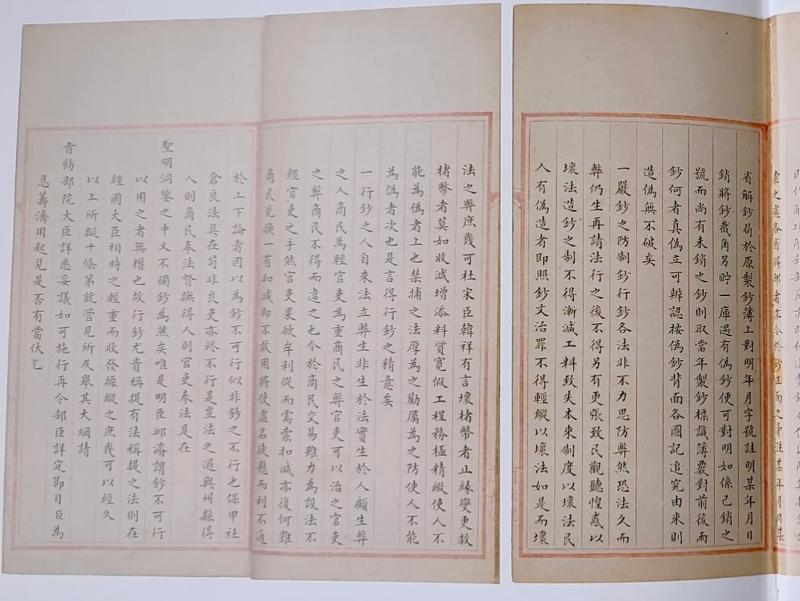 索之處各省解部者亦令於鈔正面之旁註某年月
省解鈔局於原製鈔簿上對明年月字號註明某年月日
銷將鈔截角另貯一庫遇有偽鈔便可對明如係已銷之
號而尚有未銷之鈔則取當年製鈔標識簿要對前後兩
鈔何者真偽立可辨認按偽鈔背面各圖記追究由來則
造偽無不破矣
一嚴鈔之防制鈔行鈔各法非不力思防弊然恐法久而
弊仍生再請法行之後不得另有更張致民觀聽惶惑以
壞法造鈔之制不得漸減工料致失本來制度以壞法民
人有偽造者即照鈔文治罪不得輕縱以壞法如是而壞
法之弊庶幾可杜宋臣韓祥有言壞楮幣者止緣變更救
楮幣者莫如收減增添料質寬假工程務極精緻使人不
能為偽者上也禁捕之法厚為之勸厲為之防使人不能
為偽者次也是言得行鈔之精意矣
一行鈔之人自來法立弊生非生於法實生於人顧生弊
之人商民為輕官吏為重商民之弊官吏可以治之官吏
之弊商民不得而違之也今於商民交易雖力為設法不
經官吏之手然官吏果欲牟利從而需索扣減亦復何難
商民兌換一有扣減即不敢用將使虛名徒懸而利不通
於上下論者因以為鈔不可行似非鈔之不行也保甲社
倉良法具在苟非良吏亦終不行是豈法之過與州縣得
人則商民奉法督撫得人則官吏奉法是在
聖明洞鑒之中又不獨鈔為然矣唯是明臣邱濬謂鈔不可行
以用之者無權也故行鈔尤貴稱提有法稱提之法則在
經國大臣相時之輕重而收發操縱之庶幾可以經久
以上所擬十條第就管見所及舉其大綱請
旨飭部院大臣詳悉妥議如可施行再令部臣詳定節目臣為
急籌濟用起見是否有當伏乞